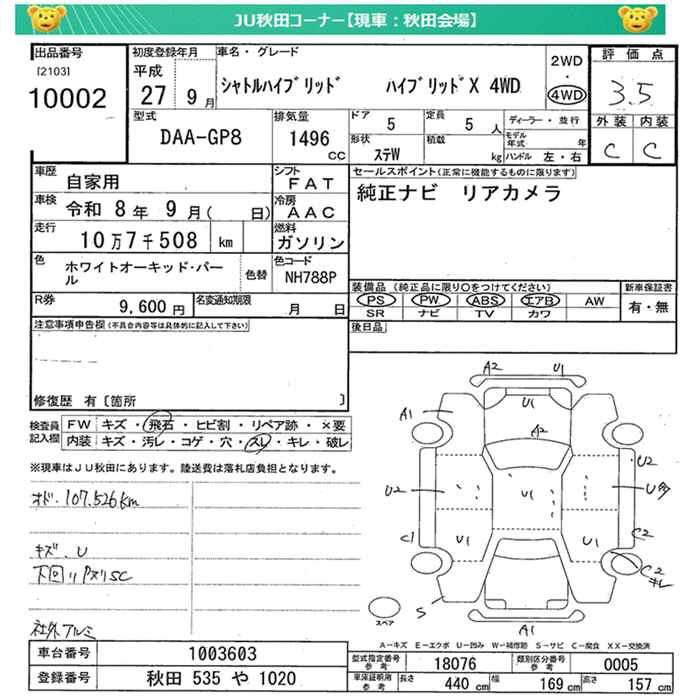 JU秋田コーナー【現車：秋田会場】
出品番号
[2103]
10002
初度登録年月
平成
27 9月
車名・グレード
シャトルハイブリッド ハイブリッドX 4WD
2WD
・
4WD
評価点
3.5
外装 内装
C C
型式
DAA-GP8
排気量
1496
CC
ドア 5
定員 5 人
形状 ステW
積載 kg
ディーラー・並行
モデル年式 年
ハンドル 左・右
車歴 自家用
シフト FAT
車検 令和 8年 9月( 日)
冷房 AAC
走行 10万7千508 km
燃料 ガソリン
色 ホワイトオーキッド・パール
色替
色コード NH788P
R券 9,600円
名変通知期限 月 日
セールスポイント(正常に機能するものに限ります)
純正ナビ リアカメラ
装備品(純正品に限り○をつけてください)
PS PW ABS エアB AW
SR ナビ TV カワ
新車保証書
有・無
後日品
注意事項申告欄(不具合内容等は具体的に記入して下さい)
修復歴 有[箇所 ]
検査員記入欄
FW キズ・飛石・ヒビ割・リペア跡・×要
内装 キズ・汚レ・コゲ・穴・スレ・キレ・破レ
※現車はJU秋田にあります。陸送費は落札店負担となります。
オド.107.526km
キズ.U
下回リPヌリSC
社外アルミ
A2 U1
A1 U1
A2
U2
U2 U1 U多
C1 U1 U1 C2
C2
キレ
S
A1
スペア
A-キズ E-エクボ U-凹み W-補修跡 S-サビ C-腐食 XX-交換済
車台番号 1003603
登録番号 秋田 535 や 1020
型式指定番号 参考 18076
類別区分番号 参考 0005
車庫証明用 参考 長さ 440 cm 幅 169 cm 高さ 157 cm